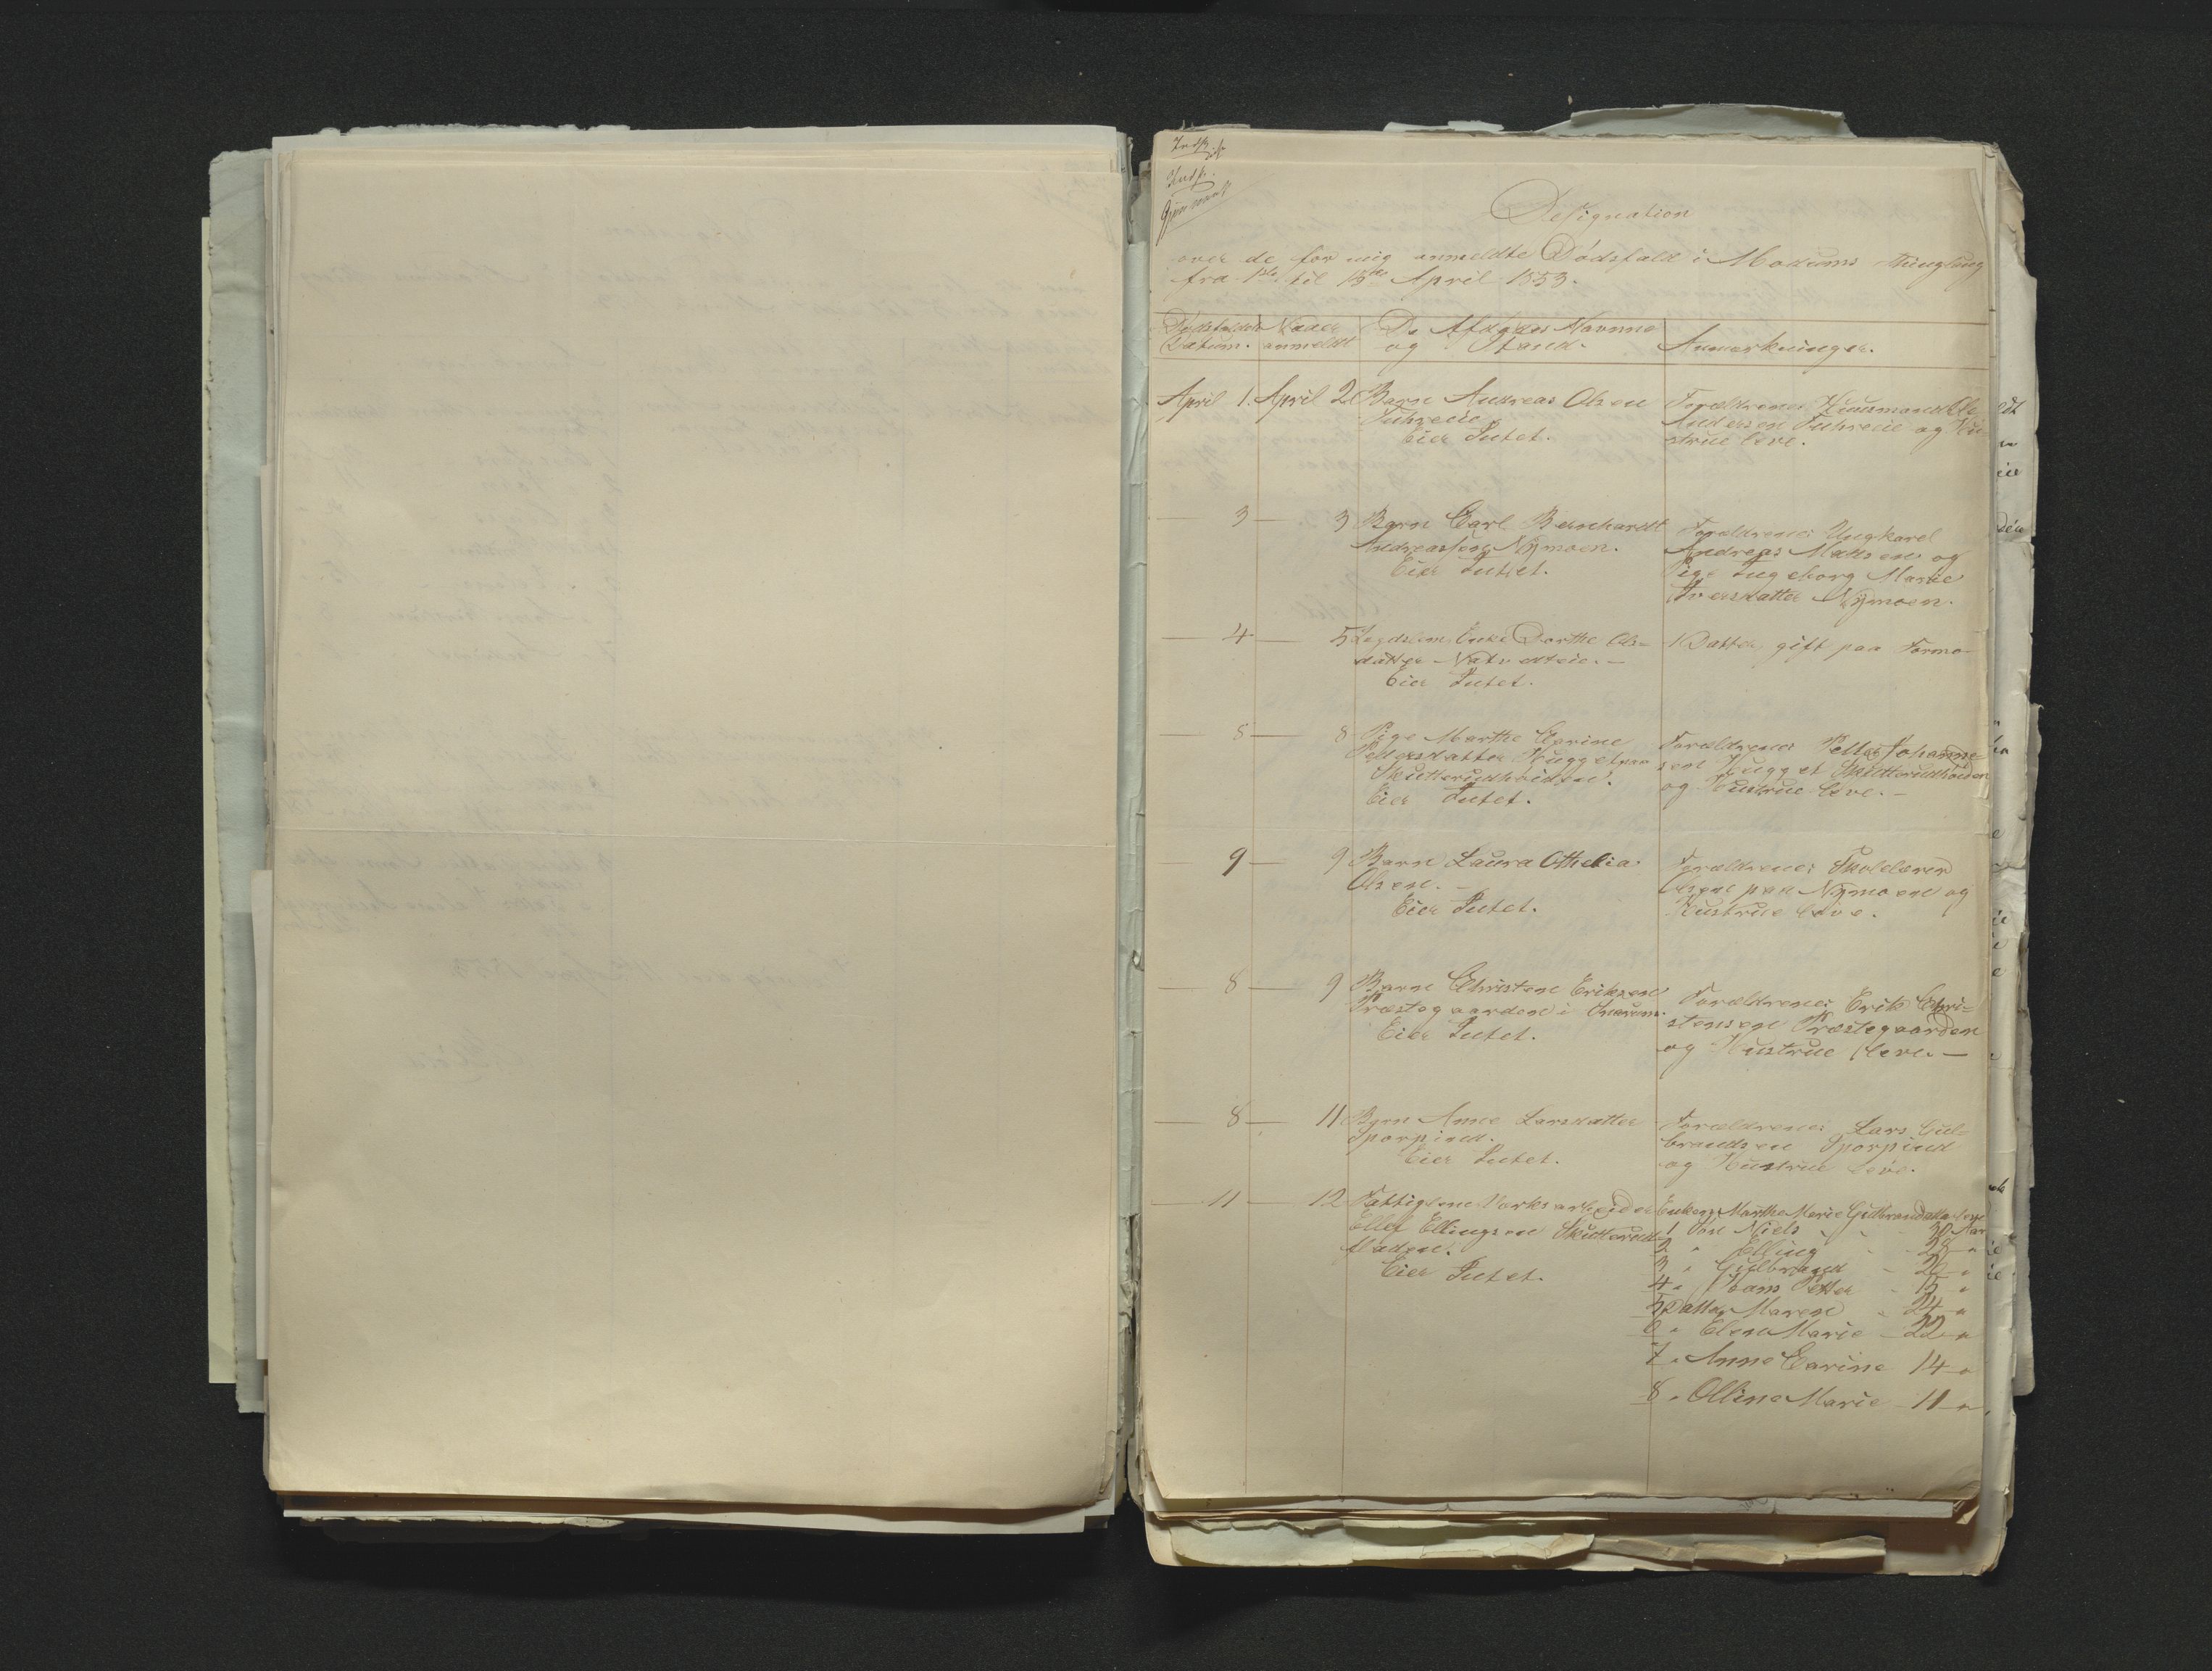 Designation
over de for mig anmeldte Dødsfald i Modums Thinglaug
fra 1ste til 15de April 1853.
Dødsfaldets Naar De Afdødes Navne
Datum. anmeldt og Stand. Anmærkninger.
April 1. April 2. Barn Andreas Olsen
Eier Intet.
Forældrene: Huusmand Ole
Andersen og Hu-
strue leve.
3 3 Barn Carl Bernhardt
Andreassen Nymoen.
Eier Intet.
Forældrene: Ungkarl
Andreas Madsen og
Pige Ingeborg Marie
Iversdatter Nymoen.
4 5 Lægdslem Enke Dorthe Ols-
datter
Eier Intet.
1 Datter gift paa
8 8 Pige Marthe Carine
Pedersdatter Hugget paa
Skutterudhøiden.
Eier Intet.
Forældrene: Petter Johanne-
sen Hugget Skutterudhøiden
og Hustrue leve. –
9 9 Barn Laura Othelia
Olsen. –
Eier Intet.
Forældrene: Skolelærer
Olsen paa Nymoen og
Hustrue leve.
8 9 Barn Christen Eriksen
Præstegaarden i Snarum.
Eier Intet.
Forældrene: Erik Chri-
stensen Præstegaarden
og Hustrue leve. –
8 11 Barn Anne Larsdatter
Sporpind.
Eier Intet.
Forældrene: Lars Gul-
brandsen Sporpind
og Hustrue leve.
11 12 Fattiglem Værksarbeider
Ellef Ellingsen Skutterud-
fladen.
Eier Intet.
Enken: Marthe Marie Gulbrandsdatter
1 Søn Niels 30 Aar
2 " Elling 28 "
3 " Gulbrand 20 "
4 " Hans Petter 15 "
5 Datter Maren 24 "
6 " Elen Marie 22 "
7 " Anne Carine 14 "
8 " Olline Marie 11 "